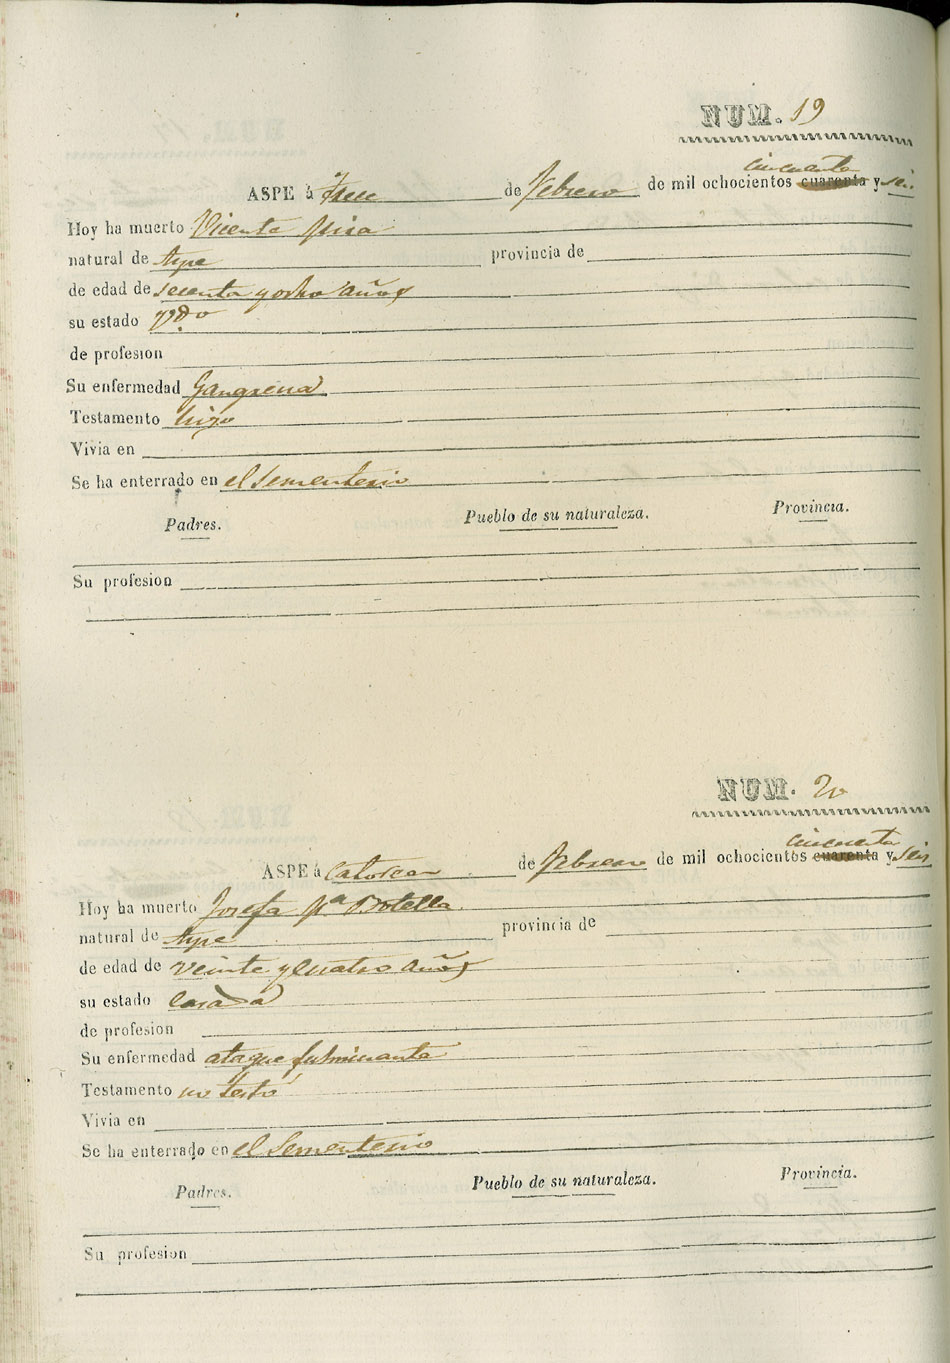 NUM. 19
ASPE á Trece de Febrero de mil ochocientos cincuenta cuarenta y seis
Hoy ha muerto Vicente Mira
natural de Aspe provincia de
de edad de secenta y ocho años
su estado V.do
de profesion
Su enfermedad Gangrena
Testamento hizo
Vivia en
Se ha enterrado en el Sementerio
Padres. Pueblo de su naturaleza. Provincia.
Su profesion
NUM. 20
ASPE á Catorce de Febrero de mil ochocientos cincuenta cuarenta y seis
Hoy ha muerto Josefa M.a Botella
natural de Aspe provincia de
de edad de veinte y cuatro años
su estado Casada
de profesion
Su enfermedad ataque fulminante
Testamento no testó
Vivia en
Se ha enterrado en el Sementerio
Padres. Pueblo de su naturaleza. Provincia.
Su profesion